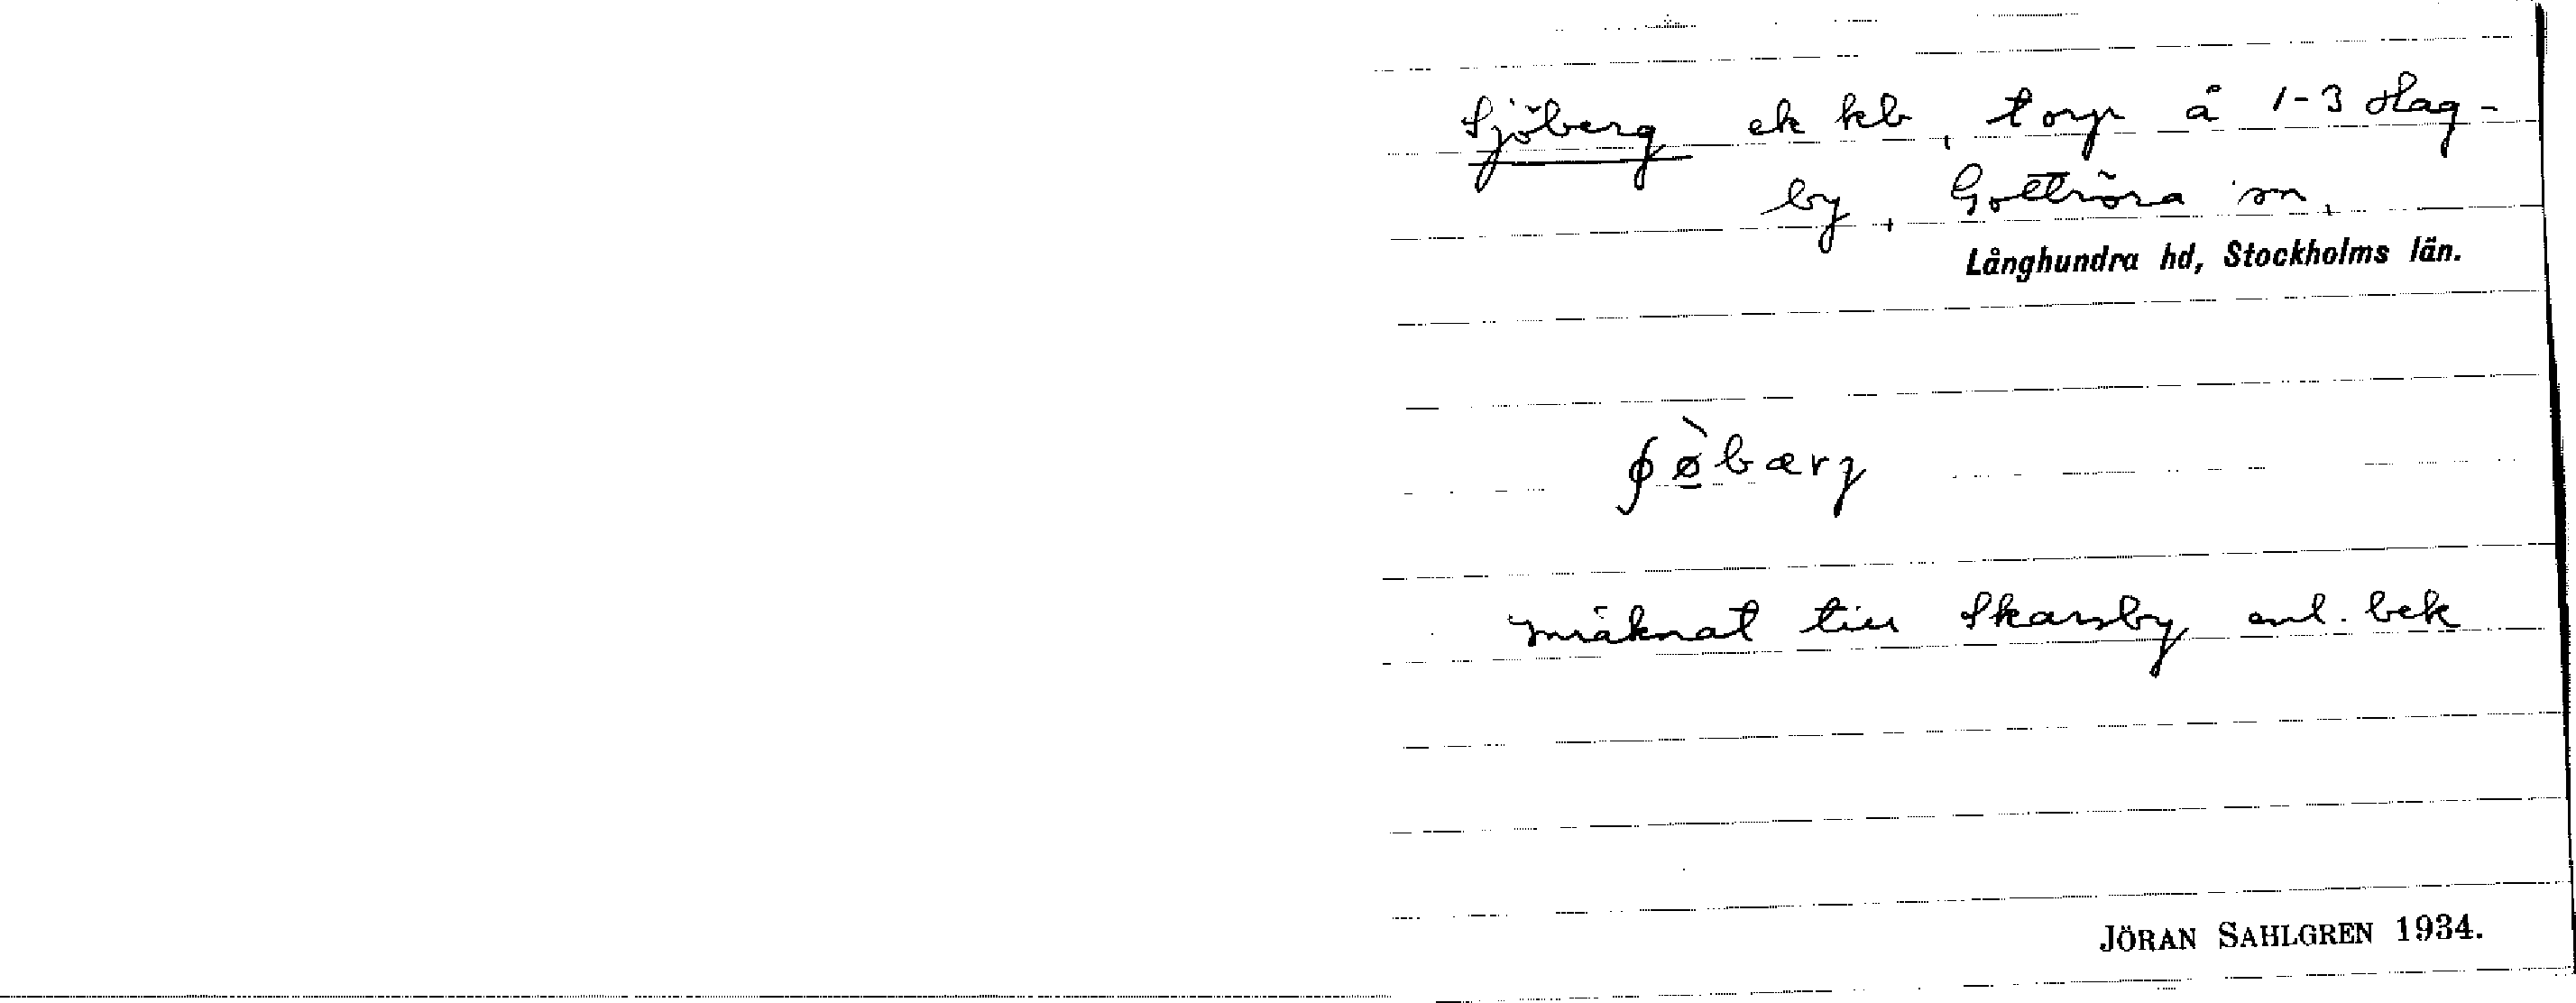 Sjöberg ek kb, torp å 1-3 Hag-
by, Gottröra sn,
Långhundra hd, Stockholms län.
ɸø̀bærg
inräknat till Skarsby enl. bek
JÖRAN SAHLGREN 1934.